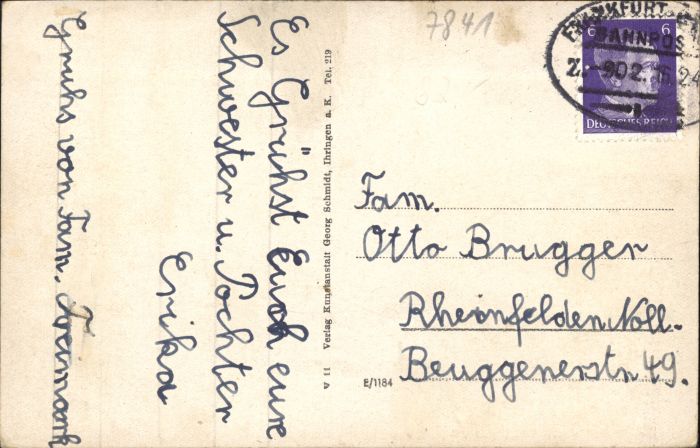 7841
FRANKFURT
BAHNPOS
Z. 902. 16.
6 6
DEUTSCHES REICH
Es Grühst Euch eure
Schwester u. Tochter
Erika
Gruhs von Fam.
V 11 Verlag Kunstanstalt Georg Schmidt, Ihringen a. K. Tel. 219
Fam.
Otto Brugger
Rheinfelden Noll.
Beuggenerstr. 49.
E/1184